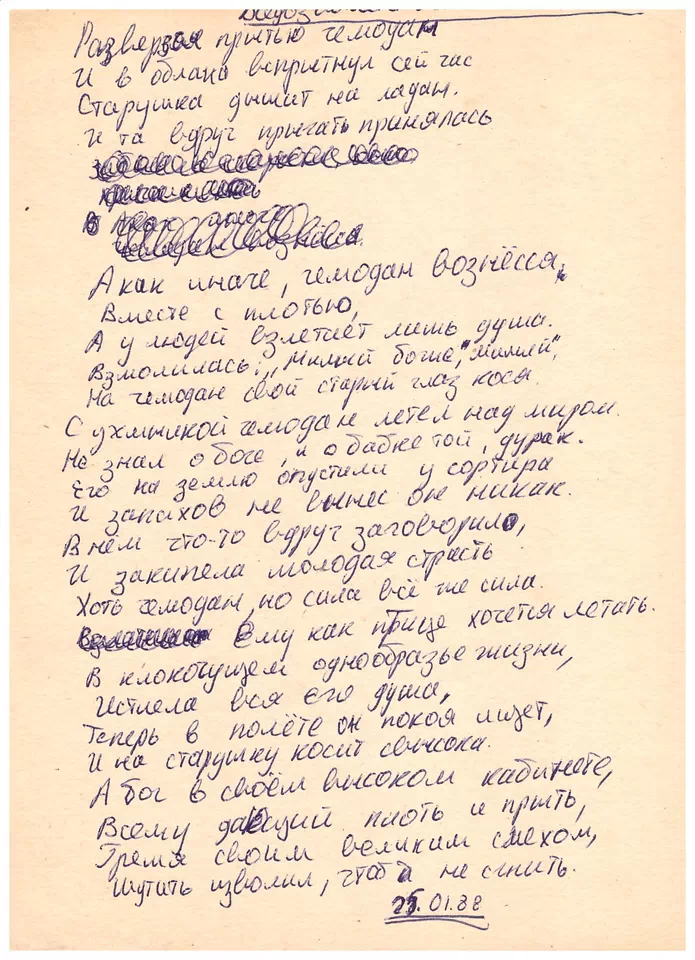 Разверзся прытью чемодан
И в облака вспрыгнул сей час
Старушка дышит на ладан.
И та вдруг прыгать принялась
А как иначе, чемодан вознёсся,
Вместе с плотью,
А у людей взлетает лишь душа.
Взмолилась: „Милый боже", "милый",
На чемодан свой старый глаз кося.
С ухмылкой чемодан летел над миром.
Не знал о боге, и о бабке той, дурак.
Его на землю опустили у сортира
И запахов не вынес он никак.
В нём что-то вдруг заговорило,
И закипела молодая страсть
Хоть чемодан, но сила всё же сила.
Ему как птице хочется летать.
В клокочущем однообразье жизни,
Истлела вся его душа,
Теперь в полёте он покоя ищет,
И на старушку косит свысока.
А бог в своём высоком кабинете,
Всему дающий плоть и прыть,
Гремя своим великим смехом,
Шутить изволил, чтоб не сгнить.
25.01.88